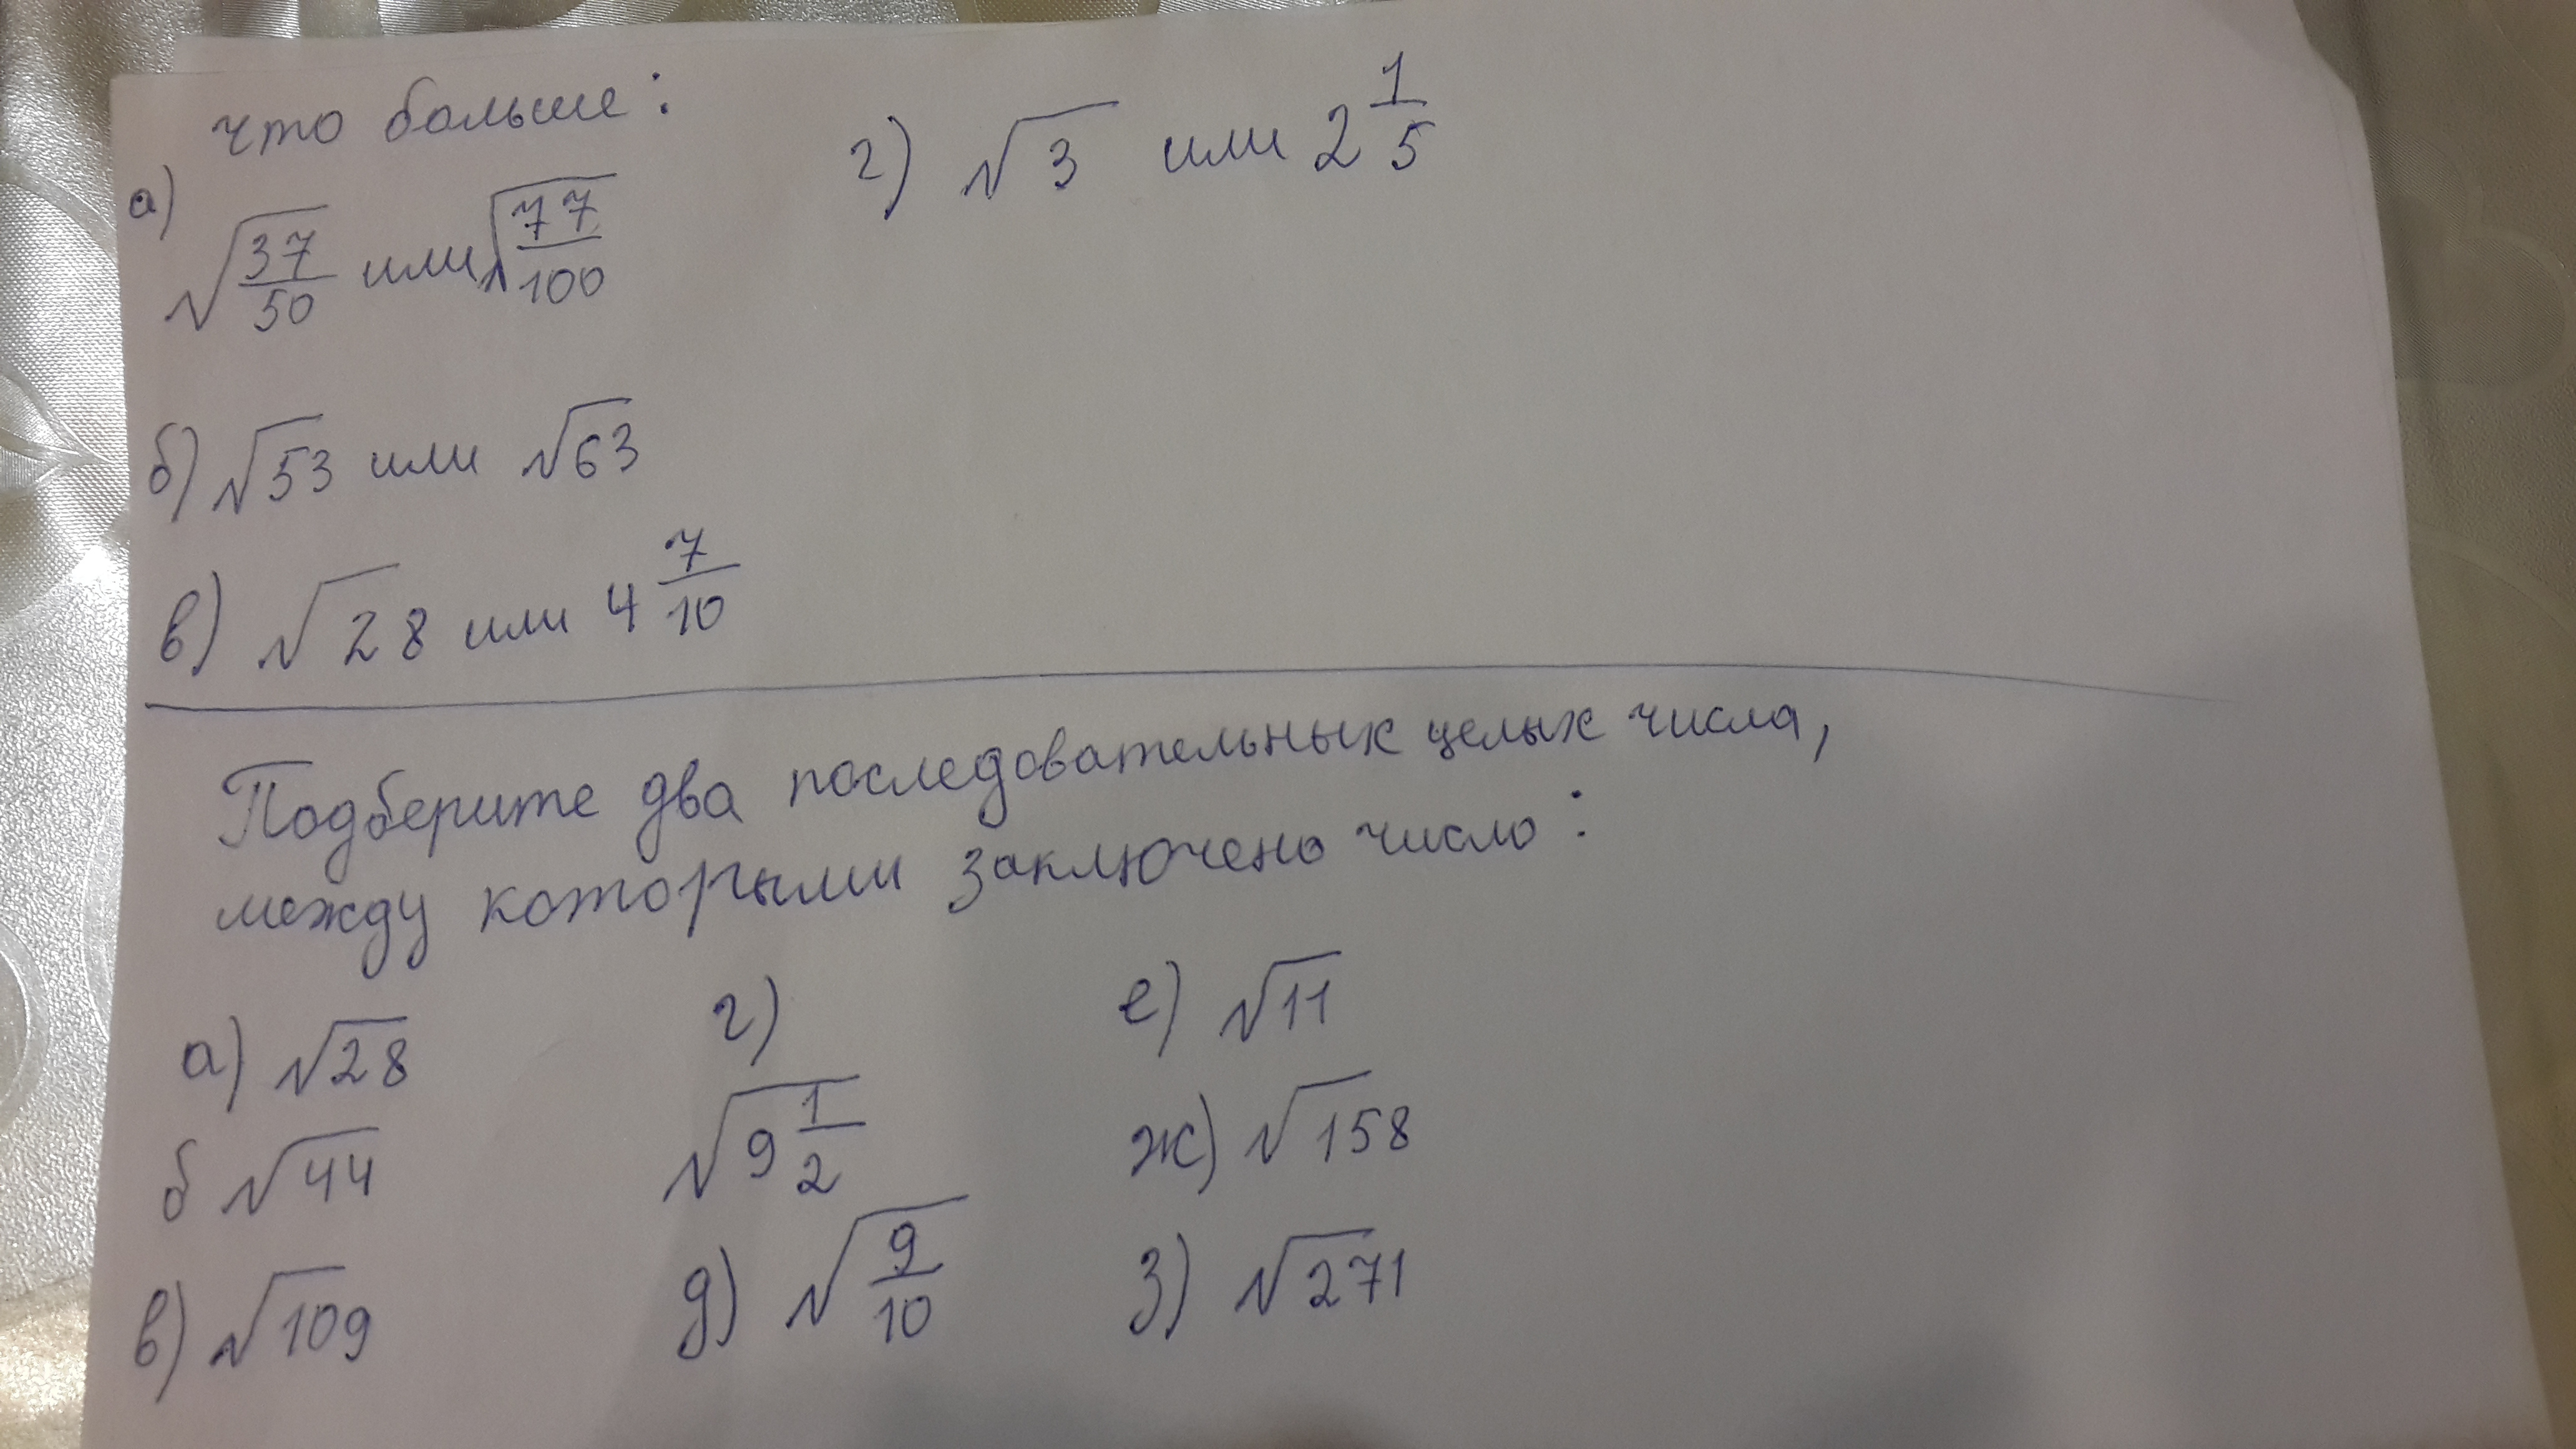 что больше:
а)
√37/50 или √77/100
б) √53 или √63
в) √28 или 4 7/10
г) √3 или 2 1/5
Подберите два последовательных целых числа,
между которыми заключено число:
а) √28
б √44
в) √109
г)
√9 1/2
д) √9/10
е) √11
ж) √158
з) √271